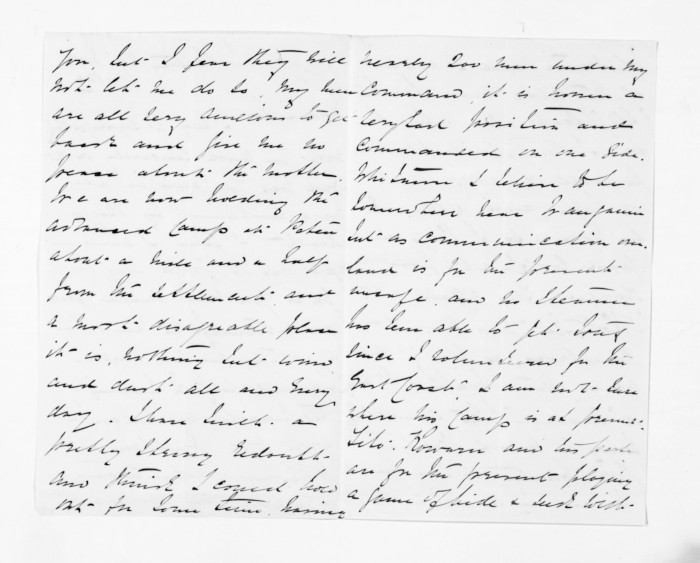 you, but I fear they will
not let me do so, my men
are all very anxious to get
back and give me no
peace about the matter.
We are now holding the
advanced Camp at Patea
about a mile and a half
from the settlement and
a most disagreeable place
it is, nothing but wind
and dust all and every
day. I have built a
pretty strong redoubt
and think I could hold
out for some time, having
nearly 200 men under my
Command, it is however a
very bad position and
Commanded on one side.
Whitmore I believe to be
somewhere near Wanganui
but as communication over-
land is for the present
unsafe, and no Steamer
has been able to get out
since I volunteered for the
East Coast, I am not sure
where his Camp is at present
Tito Kowaru and his party
are for the present playing
a game of hide & seek with